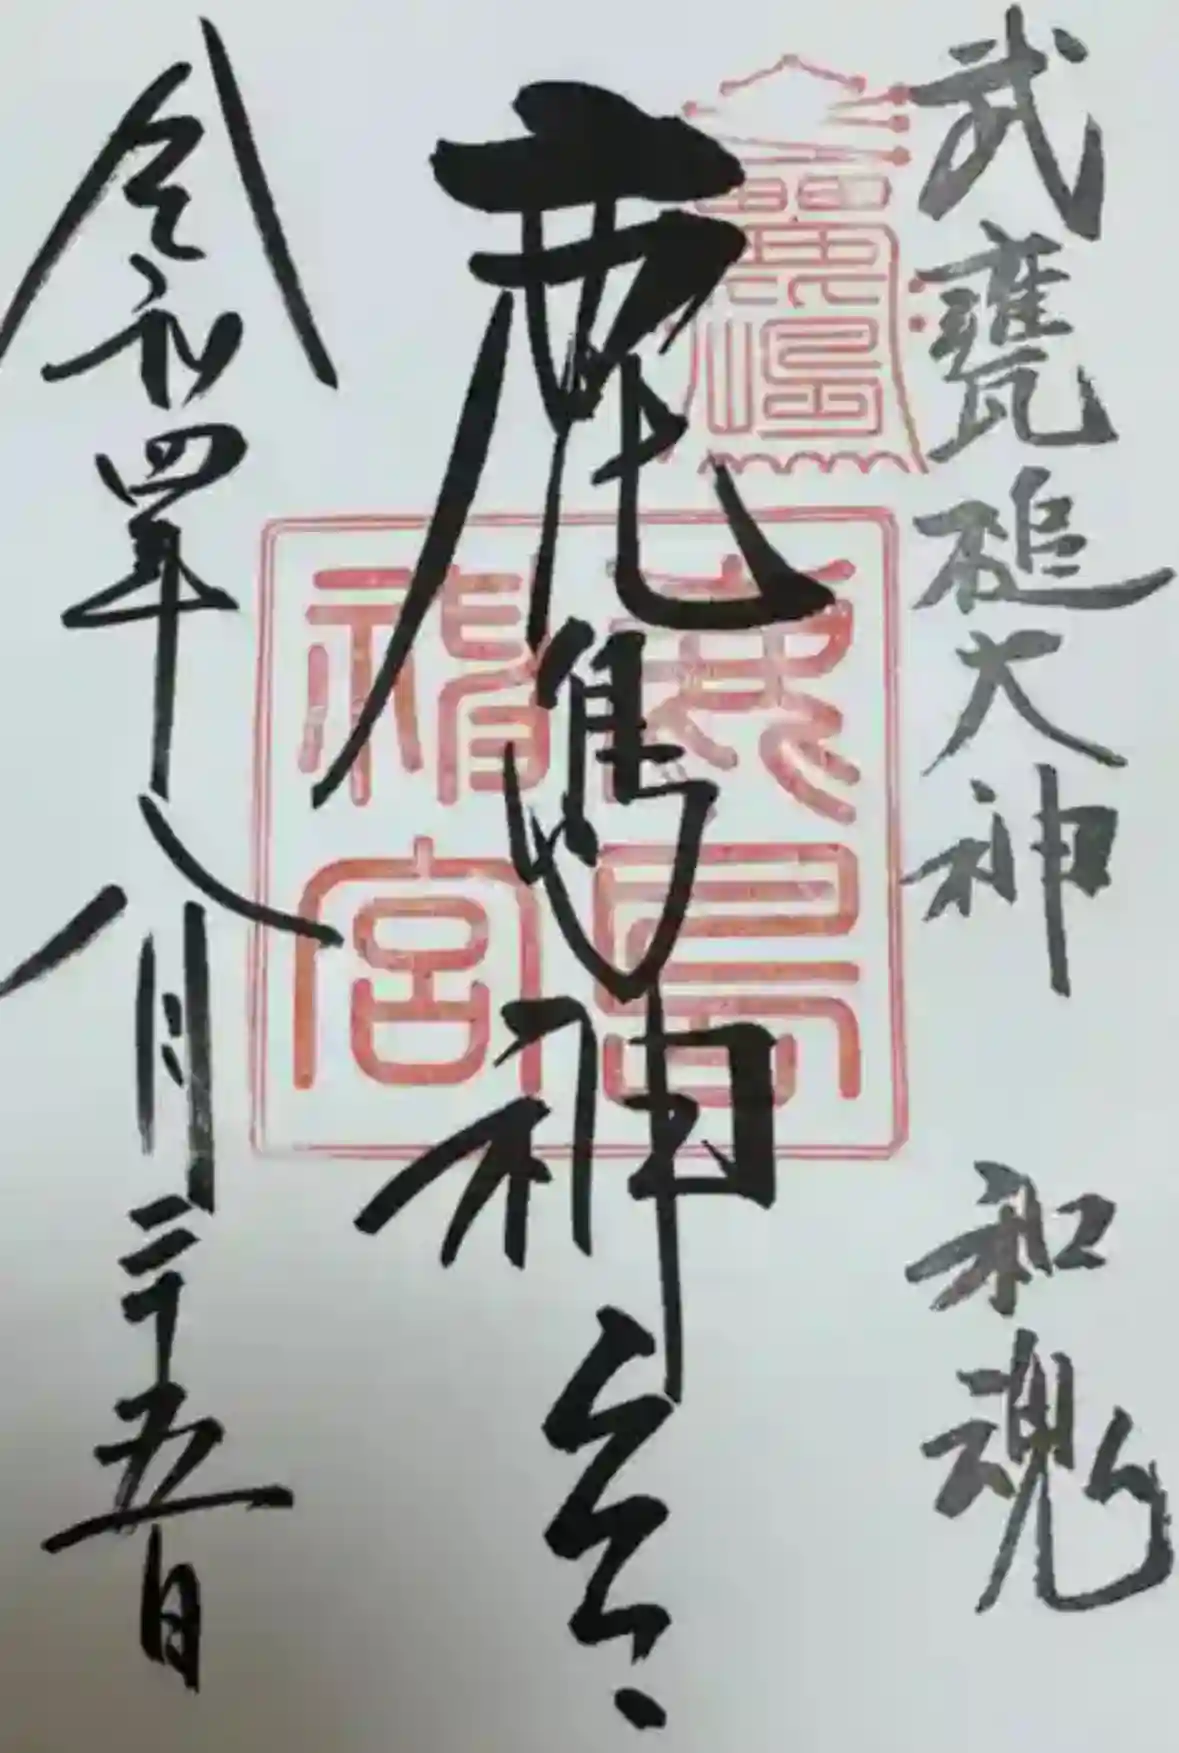 武甕槌大神 和魂
鹿島神宮
令和四年八月二十五日
鹿嶋
鹿島
神宮